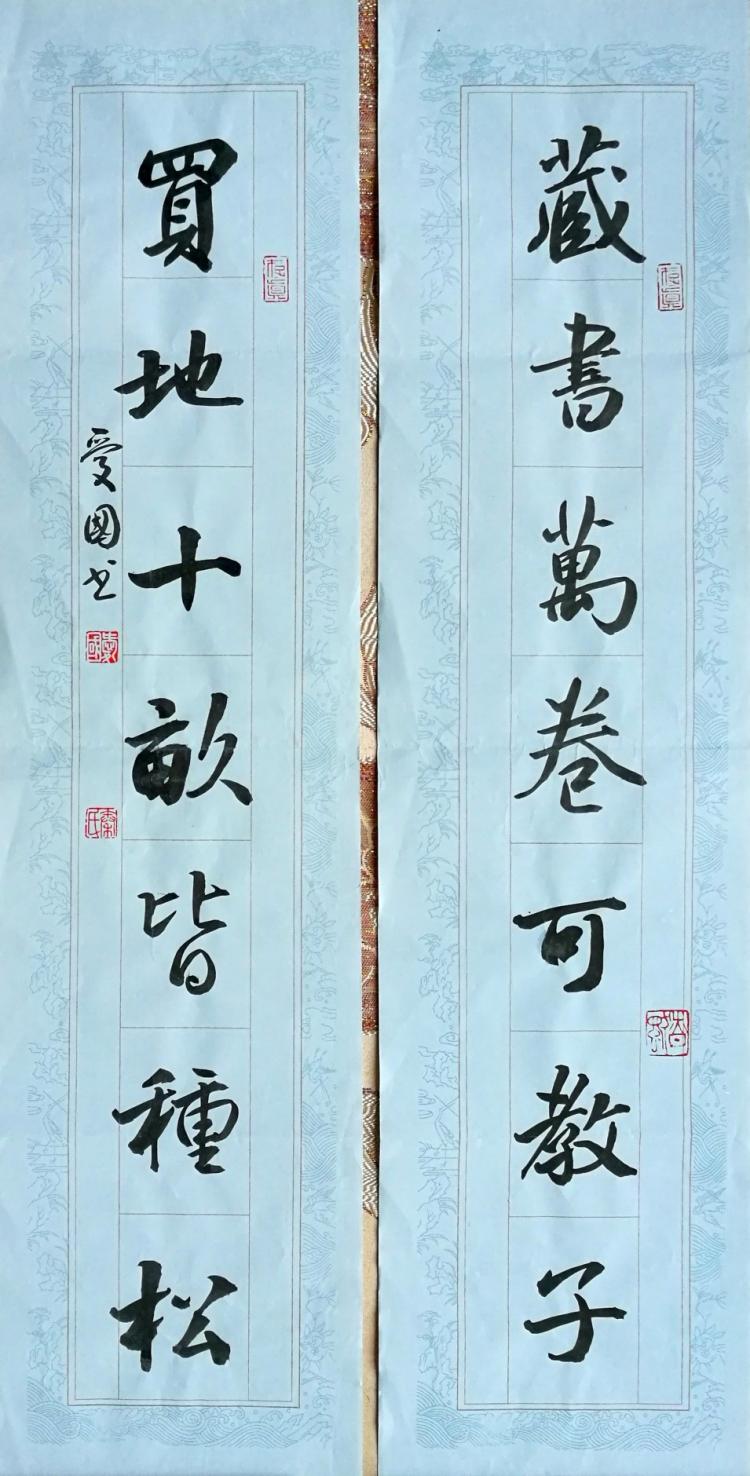 藏書萬卷可教子
買地十畝皆種松
愛國书